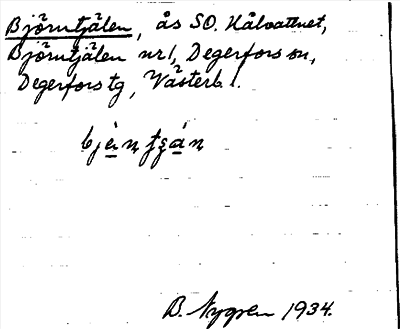 Björntjälen, ås SO. Hålvattnet,
Björntjälen nr 1, Degerfors sn,
Degerfors tg, Västerb. l.
B. Nygren 1934.